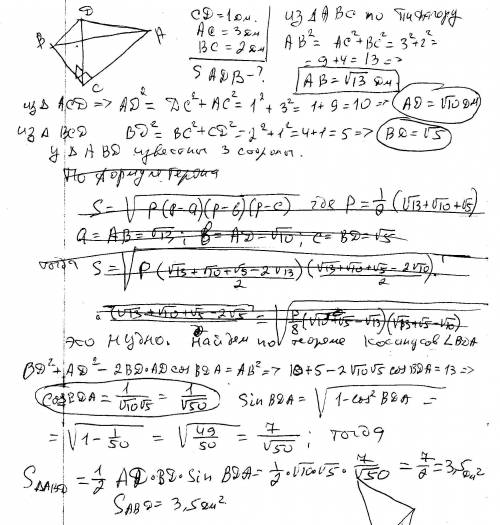 D
B
A
C
CD = 1 дм.
AC = 3 дм
BC = 2 дм
S ADB - ?
из Δ ABC по Пифагору
AB² = AC² + BC² = 3² + 2² =
= 9 + 4 = 13 =>
AB = √13 дм
из Δ ACD => AD² = DC² + AC² = 1² + 3² = 1 + 9 = 10 => AD = √10 дм
из Δ BCD BD² = BC² + CD² = 2² + 1² = 4 + 1 = 5 => BD = √5
У Δ ABD известны 3 стороны.
По формуле Герона
S = √P(P-a)(P-b)(P-c) где P = 1/2 (√13 + √10 + √5)
a = AB = √13; b = AD = √10; c = BD = √5
тогда S = √P (√13 + √10 + √5 - 2√13)/2 (√13 + √10 + √5 - 2√10)/2
· (√13 + √10 + √5 - 2√5)/2 = √P/8 (√10 + √5 - √13)(√13 + √5 - √10)
это нудно. Найдем по теореме косинусов ∠BDA
BD² + AD² - 2BD·AD cos BDA = AB² => 10 + 5 - 2√10√5 cos BDA = 13 =>
cos BDA = 1/√10√5 = 1/√50 Sin BDA = √1 - cos² BDA =
= √1 - 1/50 = √49/50 = 7/√50; тогда
S ΔABD = 1/2 AD·BD·Sin BDA = 1/2·√10√5·7/√50 = 7/2 = 3,5 дм²
S ABD = 3,5 дм²